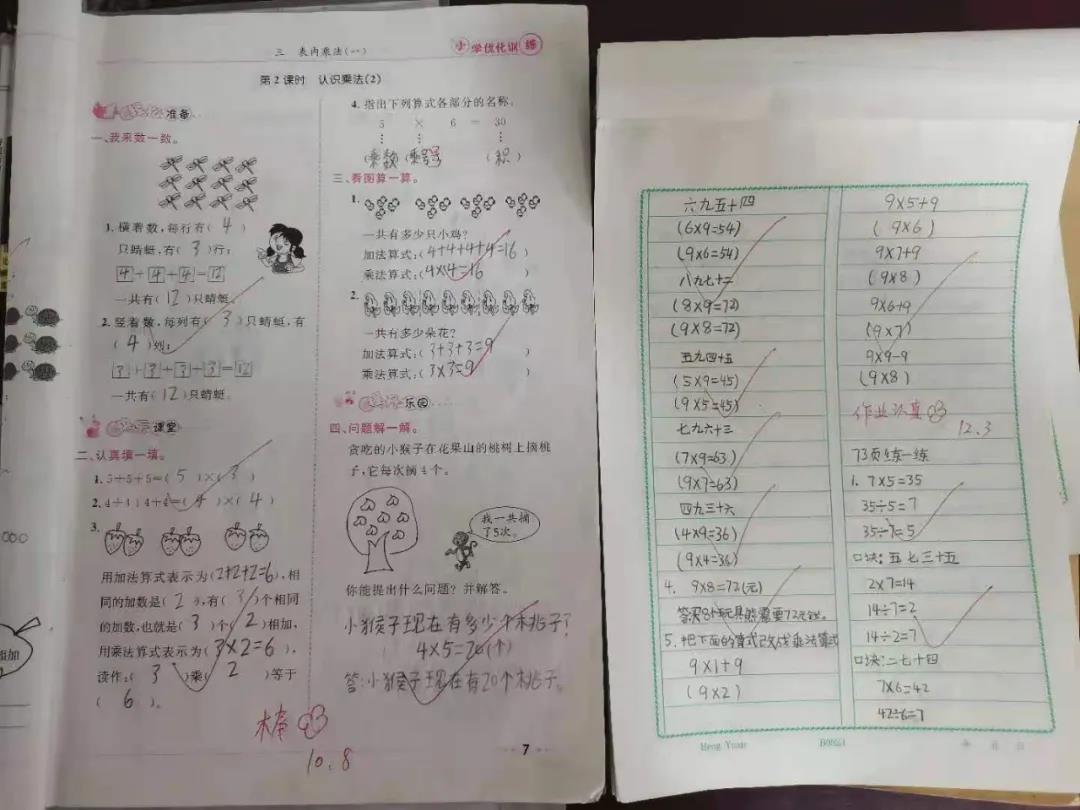 三 表内乘法(一)
小学优化训练
第2课时 认识乘法(2)
准备
一、我来数一数。
1. 横着数,每行有( 4 )
只蜻蜓,有( 3 )行:
4+4+4=12
一共有(12)只蜻蜓。
2. 竖着数,每列有( 3 )只蜻蜓,有
( 4 )列:
3+3+3+3=12
一共有(12)只蜻蜓。
课堂
二、认真填一填。
1. 5+5+5=( 5 )×( 3 )
2. 4+4+4+4=( 4 )×( 4 )
3.
用加法算式表示为(2+2+2=6),相
同的加数是( 2 ),有( 3 )个相同
的加数,也就是( 3 )个( 2 )相加,
用乘法算式表示为(3×2=6),
读作:( 3 )乘( 2 )等于
( 6 )。
棒
10.8
4. 指出下列算式各部分的名称。
5 × 6 = 30
(乘数)(乘号) (积)
三、看图算一算。
1.
一共有多少只小鸡?
加法算式:(4+4+4+4=16)
乘法算式:(4×4=16)
2.
一共有多少朵花?
加法算式:(3+3+3=9)
乘法算式:(3×3=9)
乐园
四、问题解一解。
贪吃的小猴子在花果山的桃树上摘桃
子,它每次摘4个。
我一共摘
了5次。
你能提出什么问题?并解答。
小猴子现在有多少个桃子?
4×5=20(个)
答:小猴子现在有20个桃子。
7
六九五十四
(6×9=54)
(9×6=54)
八九七十二
(8×9=72)
(9×8=72)
五九四十五
(5×9=45)
(9×5=45)
七九六十三
(7×9=63)
(9×7=63)
四九三十六
(4×9=36)
(9×4=36)
4. 9×8=72(元)
答:买8个玩具熊需要72元钱。
5. 把下面的算式改成乘法算式
9×1+9
(9×2)
9×5+9
(9×6)
9×7+9
(9×8)
9×6+9
(9×7)
9×9-9
(9×8)
作业认真
12.3
73页练一练
1. 7×5=35
35÷5=7
35÷7=5
口块:五七三十五
2×7=14
14÷7=2
14÷2=7
口块:二七十四
7×6=42
42÷6=7
Heng Yuan
年 月 日